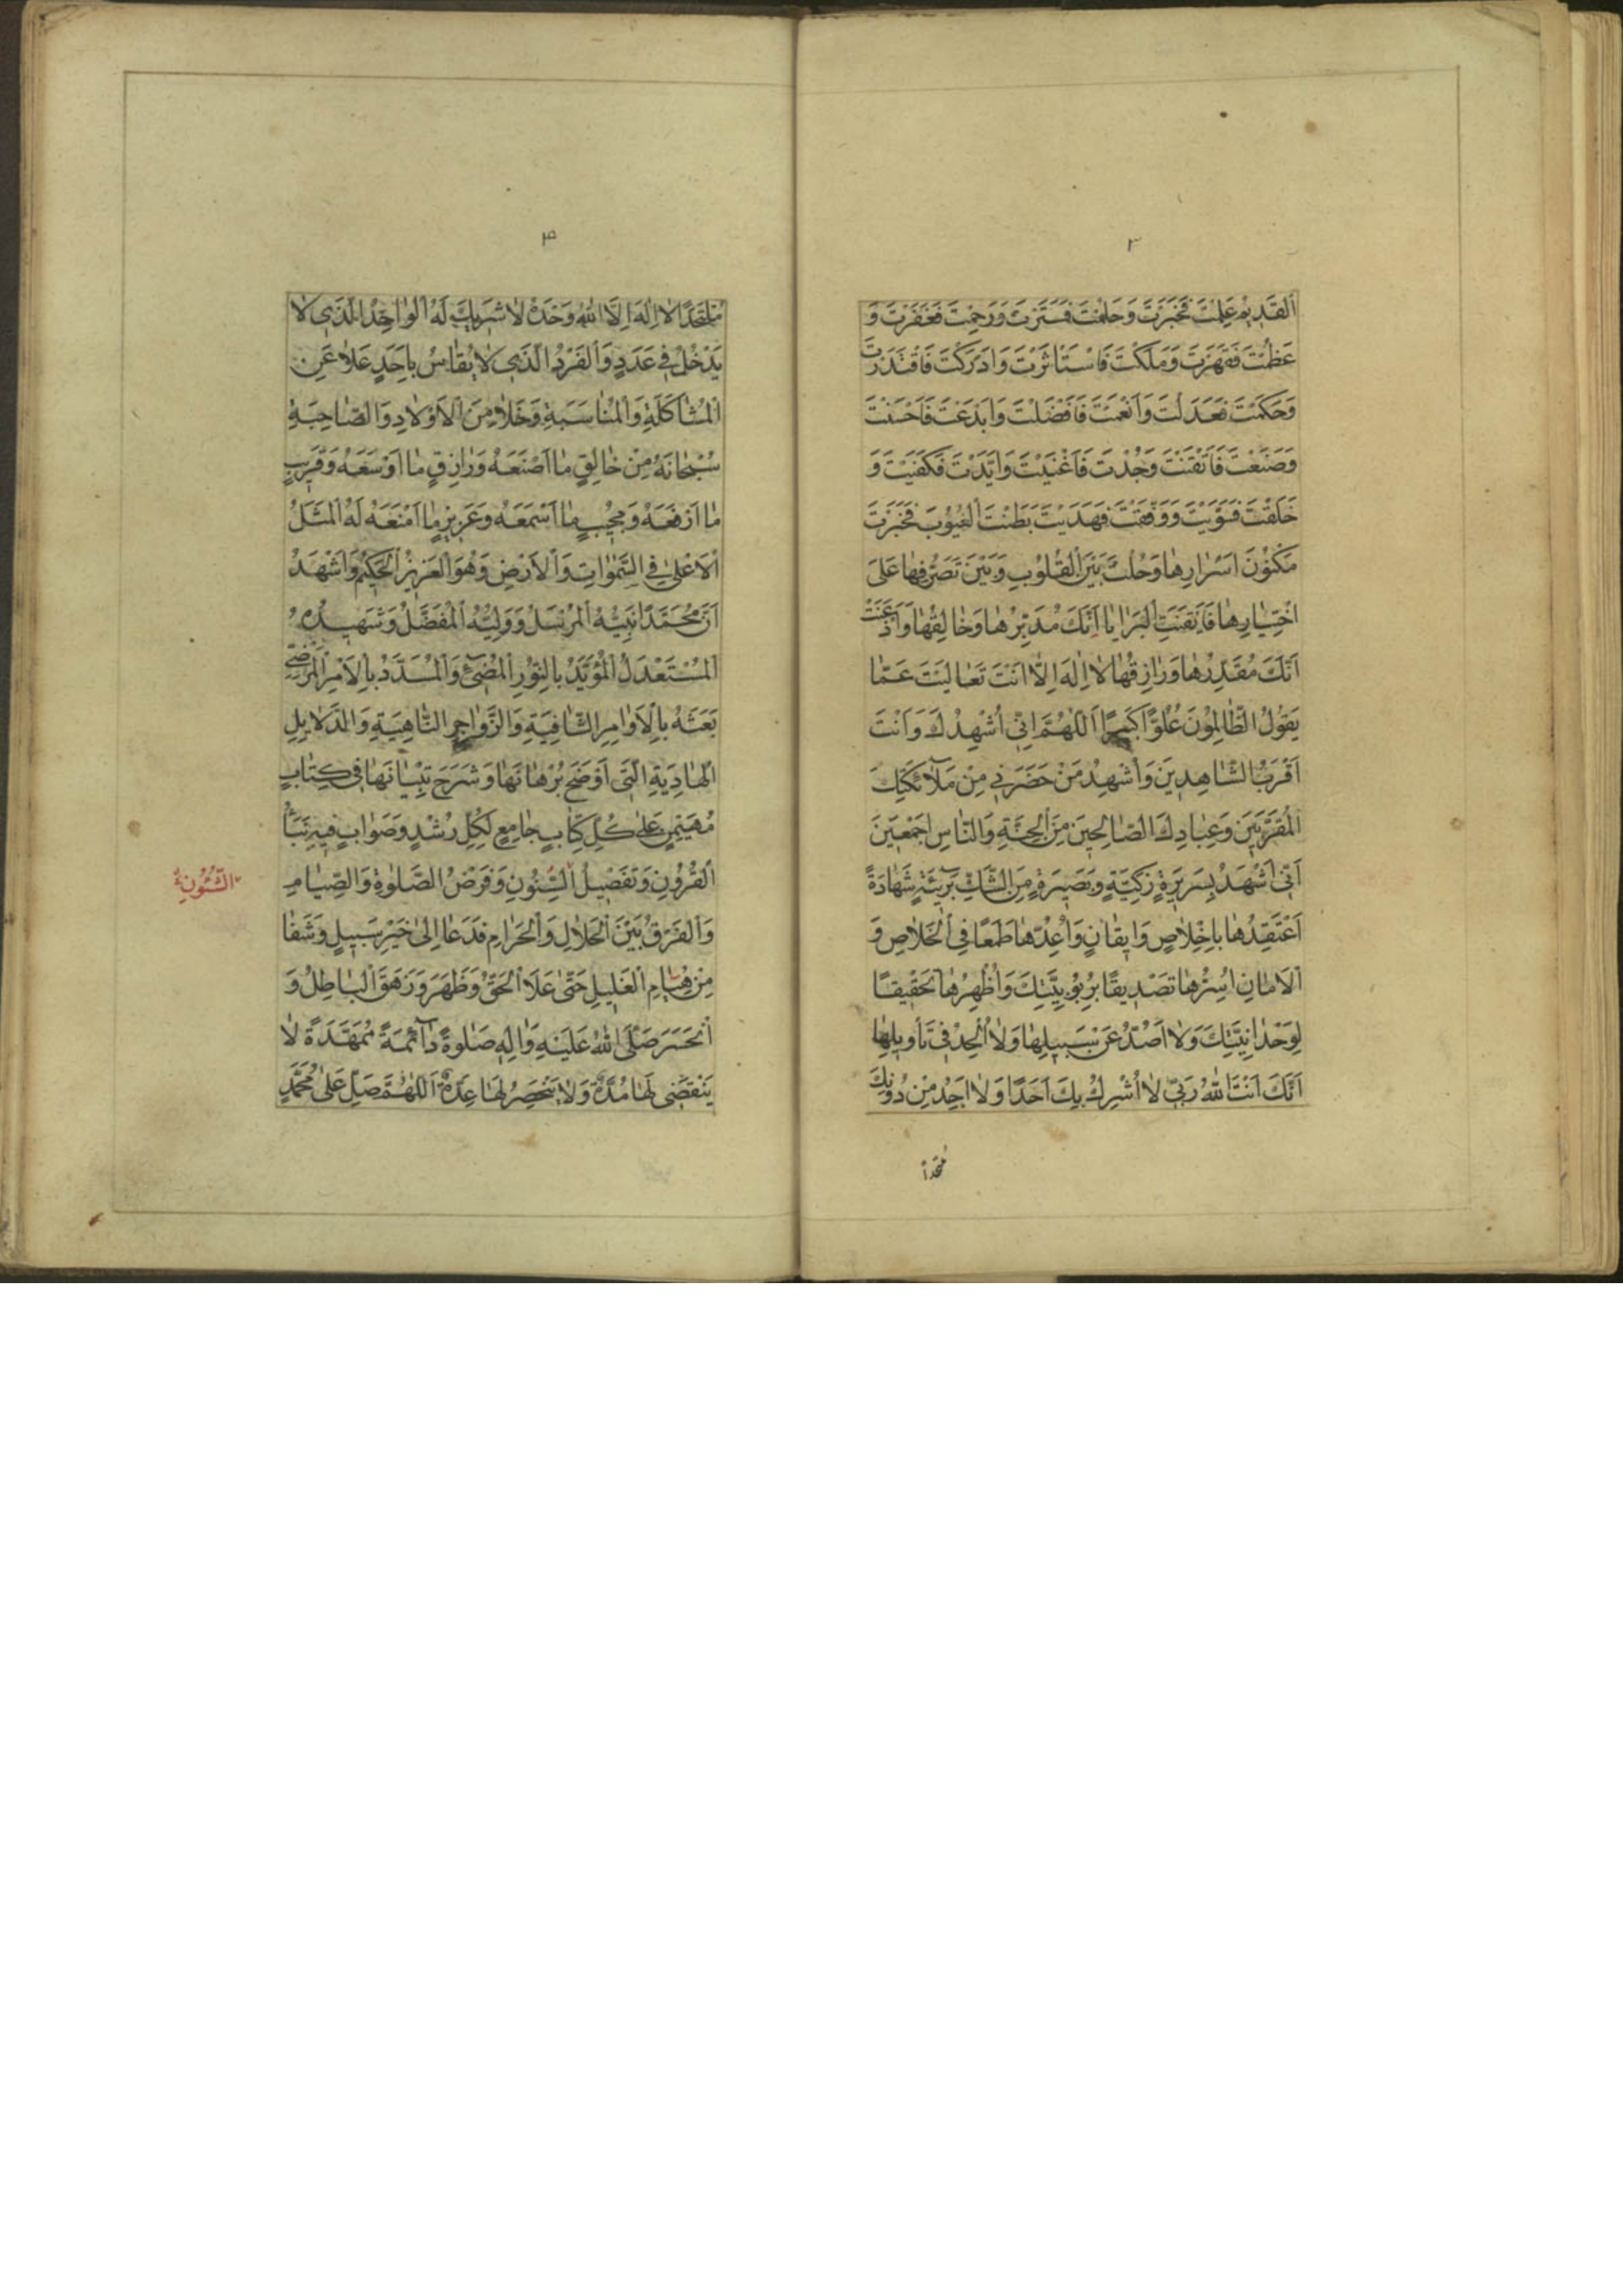 ٣
اَلْقَدیٖمِ عَلِمْتَ فَخَبَرْتَ وَحَلُمْتَ فَسَتَرْتَ وَرَحِمْتَ فَغَفَرْتَ وَ
عَظُمْتَ فَقَهَرْتَ وَمَلَكْتَ فَاسْتَأْثَرْتَ وَاَدْرَكْتَ فَاقْتَدَرْتَ
وَحَكَمْتَ فَعَدَلْتَ وَاَنْعَمْتَ فَاَفْضَلْتَ وَاَبْدَعْتَ فَاَحْسَنْتَ
وَصَنَعْتَ فَاَتْقَنْتَ وَجُدْتَ فَاَغْنَيْتَ وَاَيَّدْتَ فَكَفَيْتَ وَ
خَلَقْتَ فَسَوَّيْتَ وَوَفَّقْتَ فَهَدَيْتَ بَطَنْتَ الْغُيُوْبَ فَخَبَرْتَ
مَكْنُوْنَ اَسْرٰارِهٰا وَحُلْتَ بَيْنَ الْقُلُوْبِ وَبَيْنَ تَصَرُّفِهٰا عَلَى
اخْتِيٰارِهٰا فَاَيْقَنَتِ الْبَرٰايٰا اَنَّكَ مُدَبِّرُهٰا وَخٰالِقُهٰا وَاَذْعَنَتْ
اَنَّكَ مُقَدِّرُهٰا وَرٰازِقُهٰا لٰا اِلٰهَ اِلَّا اَنْتَ تَعٰالَيْتَ عَمّٰا
يَقُوْلُ الظّٰالِمُوْنَ عُلُوًّا كَبيٖرًا اَللّٰهُمَّ اِنّیٖ اُشْهِدُكَ وَاَنْتَ
اَقْرَبُ الشّٰاهِدیٖنَ وَاُشْهِدُ مَنْ حَضَرَنیٖ مِنْ مَلٰآئِكَتِكَ
الْمُقَرَّبیٖنَ وَعِبٰادِكَ الصّٰالِحیٖنَ مِنَ الْجِنَّةِ وَالنّٰاسِ اَجْمَعیٖنَ
اَنّیٖ اَشْهَدُ بِسَریٖرَةٍ زَكِيَّةٍ وَبَصیٖرَةٍ مِنَ الشَّكِّ بَریٖئَةٍ شَهٰادَةً
اَعْتَقِدُهٰا بِاِخْلٰاصٍ وَایٖقٰانٍ وَاُعِدُّهٰا طَمَعًا فِی الْخَلٰاصِ وَ
الْاَمٰانِ اُسِرُّهٰا تَصْدیٖقًا بِرُبُوْبِيَّتِكَ وَاُظْهِرُهٰا تَحْقیٖقًا
لِوَحْدٰانِيَّتِكَ وَلٰا اَصُدُّ عَنْ سَبیٖلِهٰا وَلٰا اُلْحِدُ فیٖ تَأْویٖلِهٰا
اَنَّكَ اَنْتَ اللّٰهُ رَبّیٖ لٰا اُشْرِكُ بِكَ اَحَدًا وَلٰا اَجِدُ مِنْ دُوْنِكَ
٤
مُلْتَحَدًا لٰا اِلٰهَ اِلَّا اللّٰهُ وَحْدَهُ لٰا شَریٖكَ لَهُ الْوٰاحِدُ الَّذیٖ لٰا
يَدْخُلُ فیٖ عَدَدٍ وَالْفَرْدُ الَّذیٖ لٰا يُقٰاسُ بِاَحَدٍ عَلٰا عَنِ
الْمُشٰاكَلَةِ وَالْمُنٰاسَبَةِ وَخَلٰا مِنَ الْاَوْلٰادِ وَالصّٰاحِبَةِ
سُبْحٰانَهُ مِنْ خٰالِقٍ مٰا اَصْنَعَهُ وَرٰازِقٍ مٰا اَوْسَعَهُ وَقَریٖبٍ
مٰا اَرْفَعَهُ وَمُجیٖبٍ مٰا اَسْمَعَهُ وَعَزیٖزٍ مٰا اَمْنَعَهُ لَهُ الْمَثَلُ
الْاَعْلٰی فِی السَّمٰوٰاتِ وَالْاَرْضِ وَهُوَ الْعَزیٖزُ الْحَكیٖمُ وَاَشْهَدُ
اَنَّ مُحَمَّدًا نَبِيُّهُ الْمُرْسَلُ وَوَلِيُّهُ الْمُفَضَّلُ وَشَهیٖدُهُ
الْمُسْتَعْدَلُ الْمُؤَيَّدُ بِالنُّوْرِ الْمُضیٖٓئِ وَالْمُسَدَّدُ بِالْاَمْرِ الْمَرْضِیِّ
بَعَثَهُ بِالْاَوٰامِرِ الشّٰافِيَةِ وَالزَّوٰاجِرِ النّٰاهِيَةِ وَالدَّلٰایِلِ
الْهٰادِيَةِ الَّتیٖ اَوْضَحَ بُرْهٰانَهٰا وَشَرَحَ تِبْيٰانَهٰا فیٖ كِتٰابٍ
مُهَيْمِنٍ عَلٰی كُلِّ كِتٰابٍ جٰامِعٍ لِكُلِّ رُشْدٍ وَصَوٰابٍ فیٖهِ نَبَأُ
الْقُرُوْنِ وَتَفْصیٖلُ السِّنُوْنِ وَفَرْضُ الصَّلٰوةِ وَالصِّيٰامِ
الشُّئُوْنِ
وَالْفَرْقُ بَيْنَ الْحَلٰالِ وَالْحَرٰامِ فَدَعٰا اِلٰی خَيْرِ سَبیٖلٍ وَشَفٰا
مِنْ هُيٰامِ الْغَلیٖلِ حَتّٰی عَلَا الْحَقُّ وَظَهَرَ وَزَهَقَ الْبٰاطِلُ وَ
انْحَسَرَ صَلَّی اللّٰهُ عَلَيْهِ وَاٰلِهٖ صَلٰوةً دٰآئِمَةً مُمَهَّدَةً لٰا
يَنْقَضیٖ لَهٰا مُدَّةٌ وَلٰا يَنْحَصِرُ لَهٰا عِدَّةٌ اَللّٰهُمَّ صَلِّ عَلٰی مُحَمَّدٍ